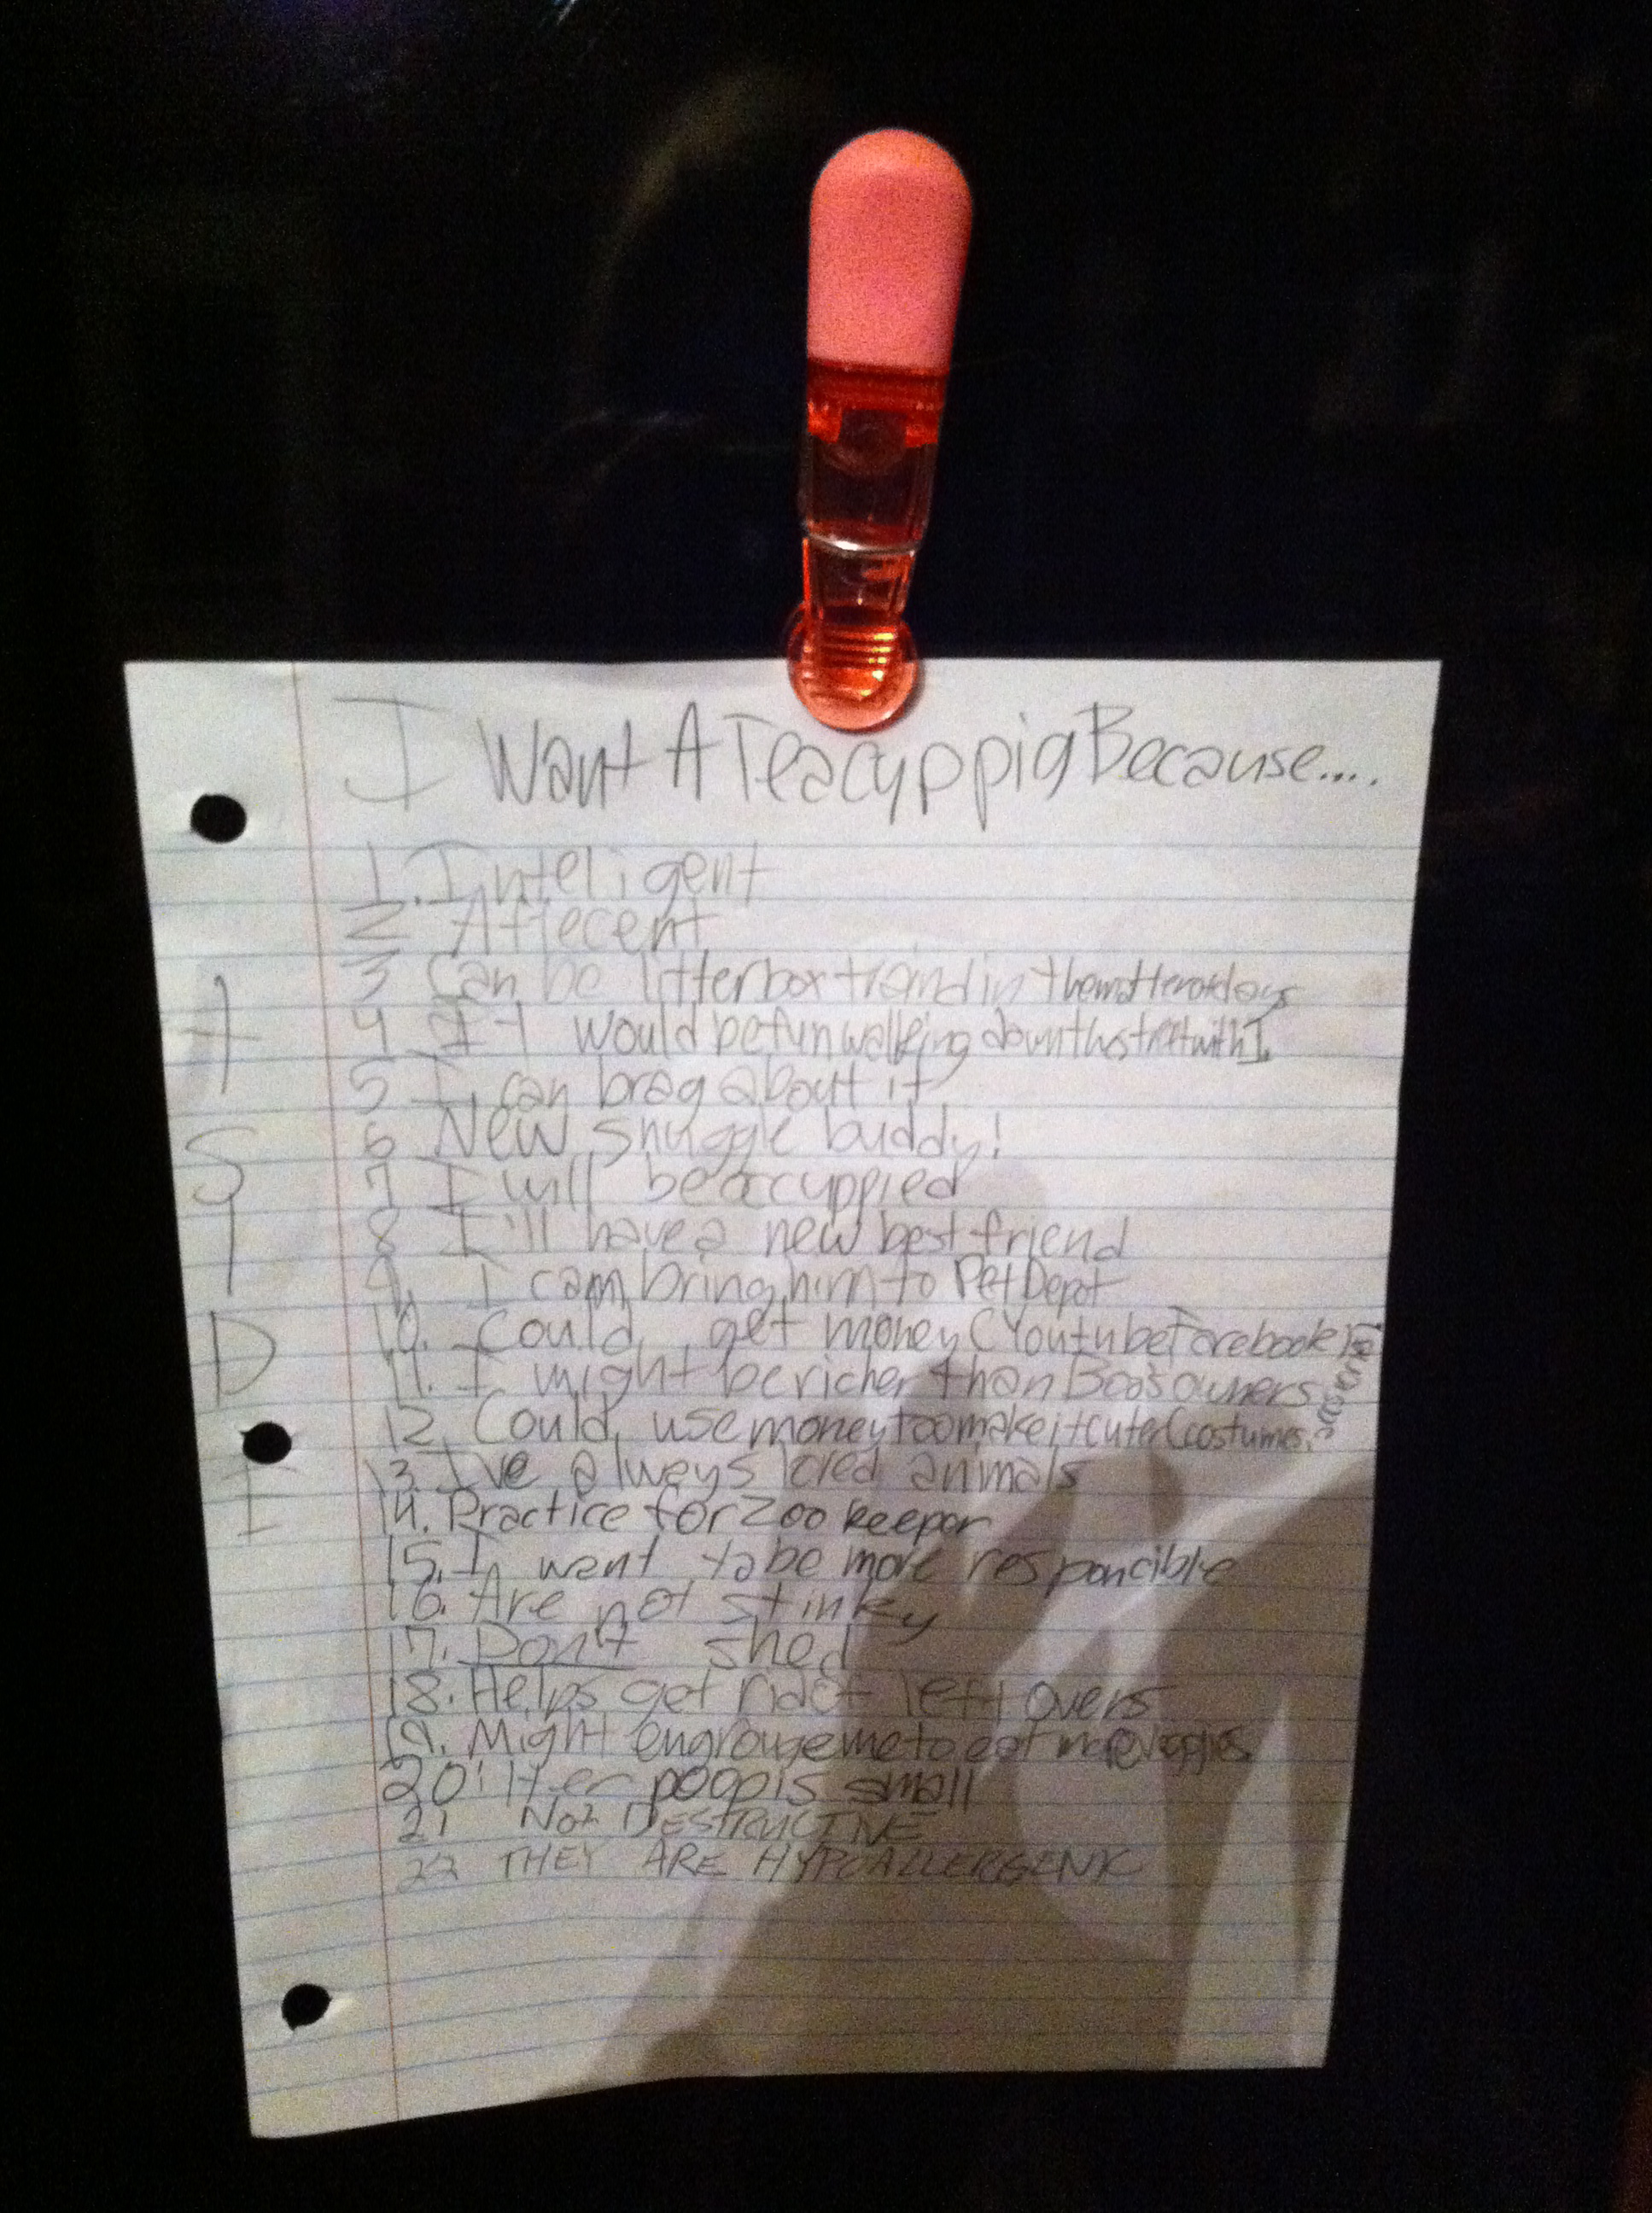 I Want A Teacyp pig Because....
1. Inteligent
2 Affecent
3 Can be litterbox traind in the matter of days
4 It would be fun walking down the street with I
5 I can brag about it
6 New snuggle buddy!
7 I will be occuppied
8 I'll have a new best friend
9. I can bring him to Pet Depot
10. Could get money (Youtube Facebook
11. I might be richer than Boo's owners
12. Could use money too make it cuter (costumes,
13. I've always loved animals
14. Practice for Zoo keeper
15. I want to be more responcible
16. Are not stinky
17. Don't shed
18. Helps get rid of left overs
19. Might engrouge me to eat more veggies
20. Her poop is small
21 NOT DESTRUCTIVE
22 THEY ARE HYPOALLERGENIC